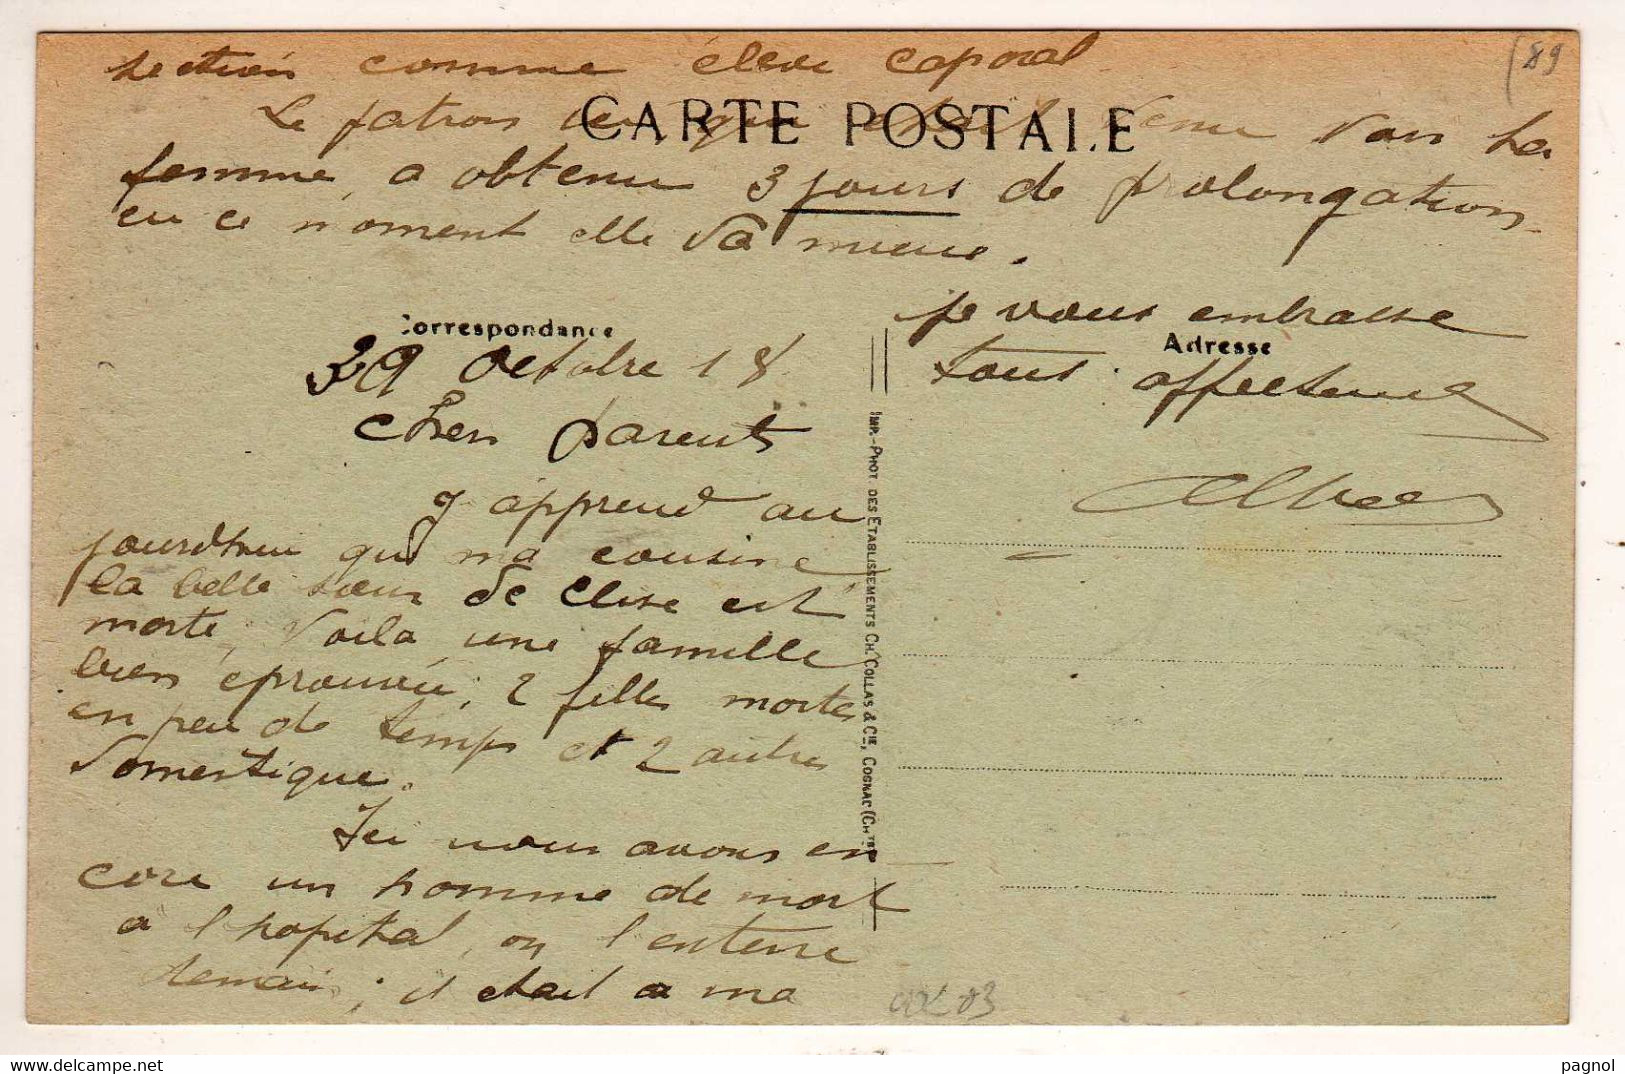 CARTE POSTALE
Correspondance
29 Octobre 18
Chers parents
J apprend au
jourdhui que ma cousine
la belle soeur de Elise est
morte, Voila une famille
bien éprouvée, 2 filles mortes
en peu de temps et 2 autres
domestique.
Ici nous avons en
core un homme de mort
a l hopital, on l'enterre
demain ; il etait a ma
section comme éleve caporal
Le patron qui etait venu voir sa
femme, a obtenu 3 jours de prolongation
en ce moment elle va mieux.
je vous embrasse
Adresse
tous affectueu
Albert
IMP.-PHOT DES ETABLISSEMENTS CH. COLLAS & CIE, COGNAC (CHTE)
(89
03
pagnol